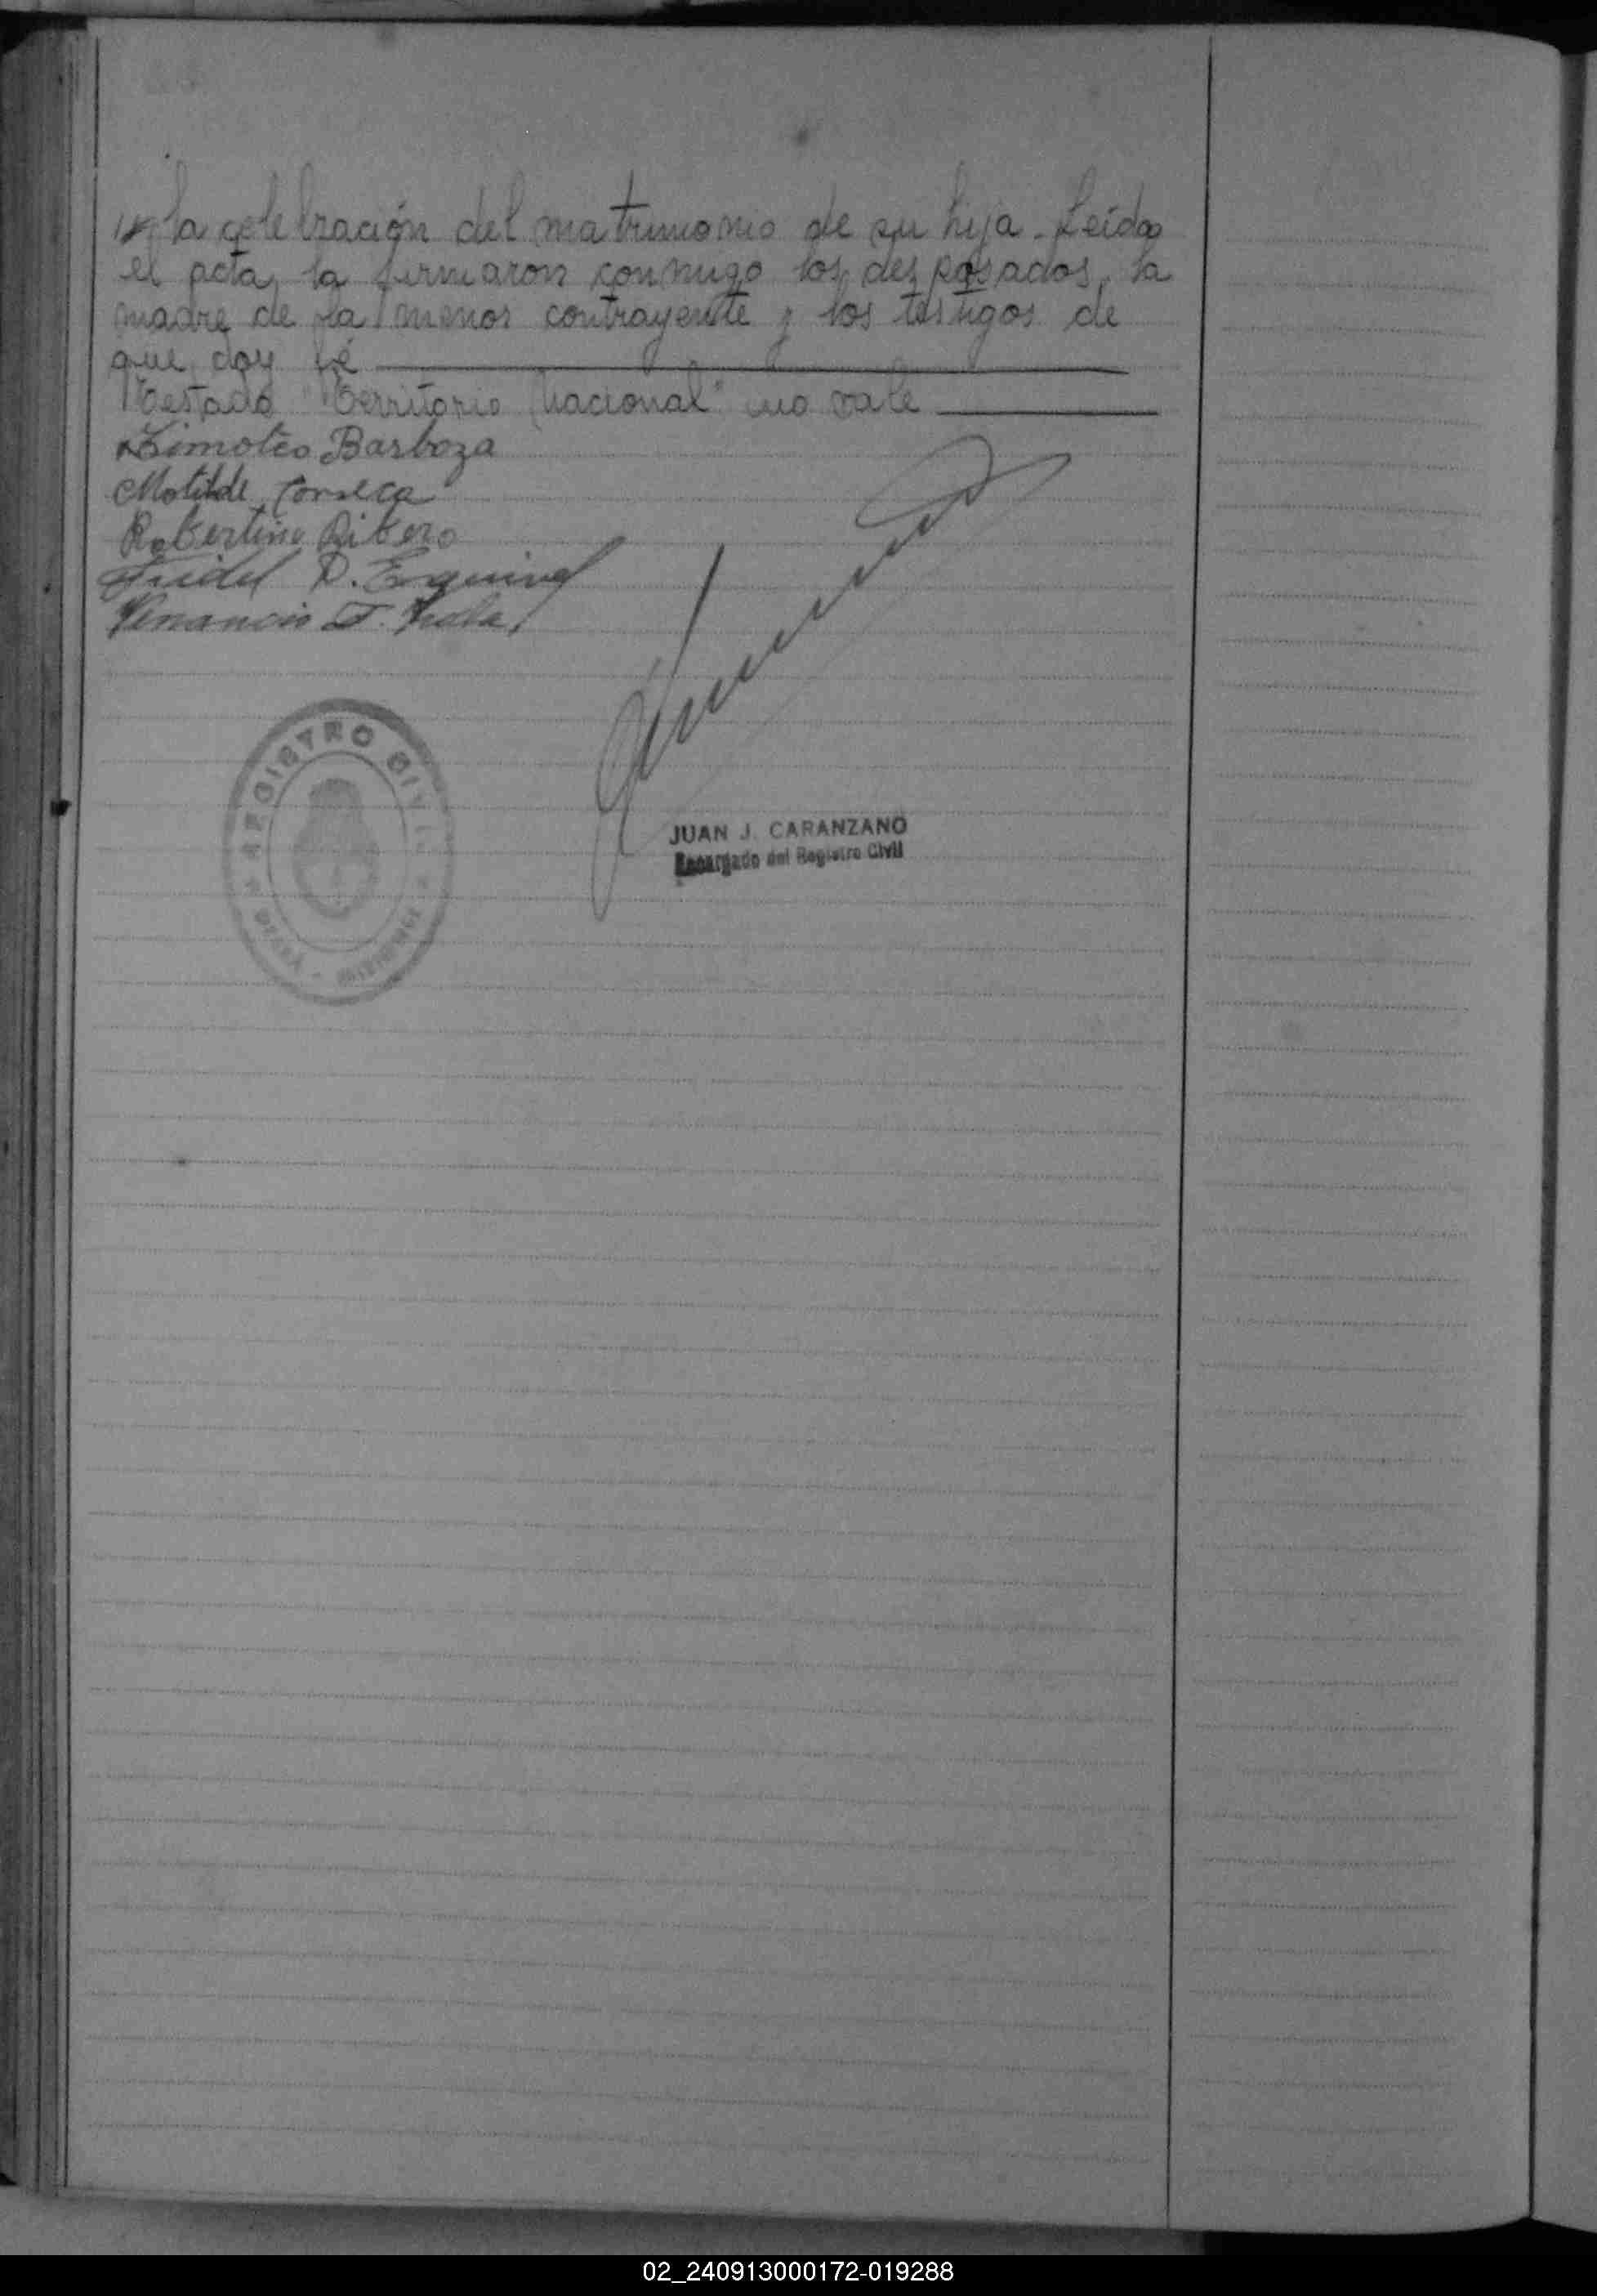 la celebración del matrimonio de su hija. Leída
el acta, la firmaron conmigo los desposados, la
madre de la menor contrayente y los testigos de
que doy fé
Testado "Territorio Nacional" no vale
Timoteo Barboza
Matilde Fonseca
Robertina Ribero
Fridel D. Esquivel
Venancio
REGISTRO CIVIL
MISIONES
JUAN J. CARANZANO
Encargado del Registro Civil
02_240913000172-019288